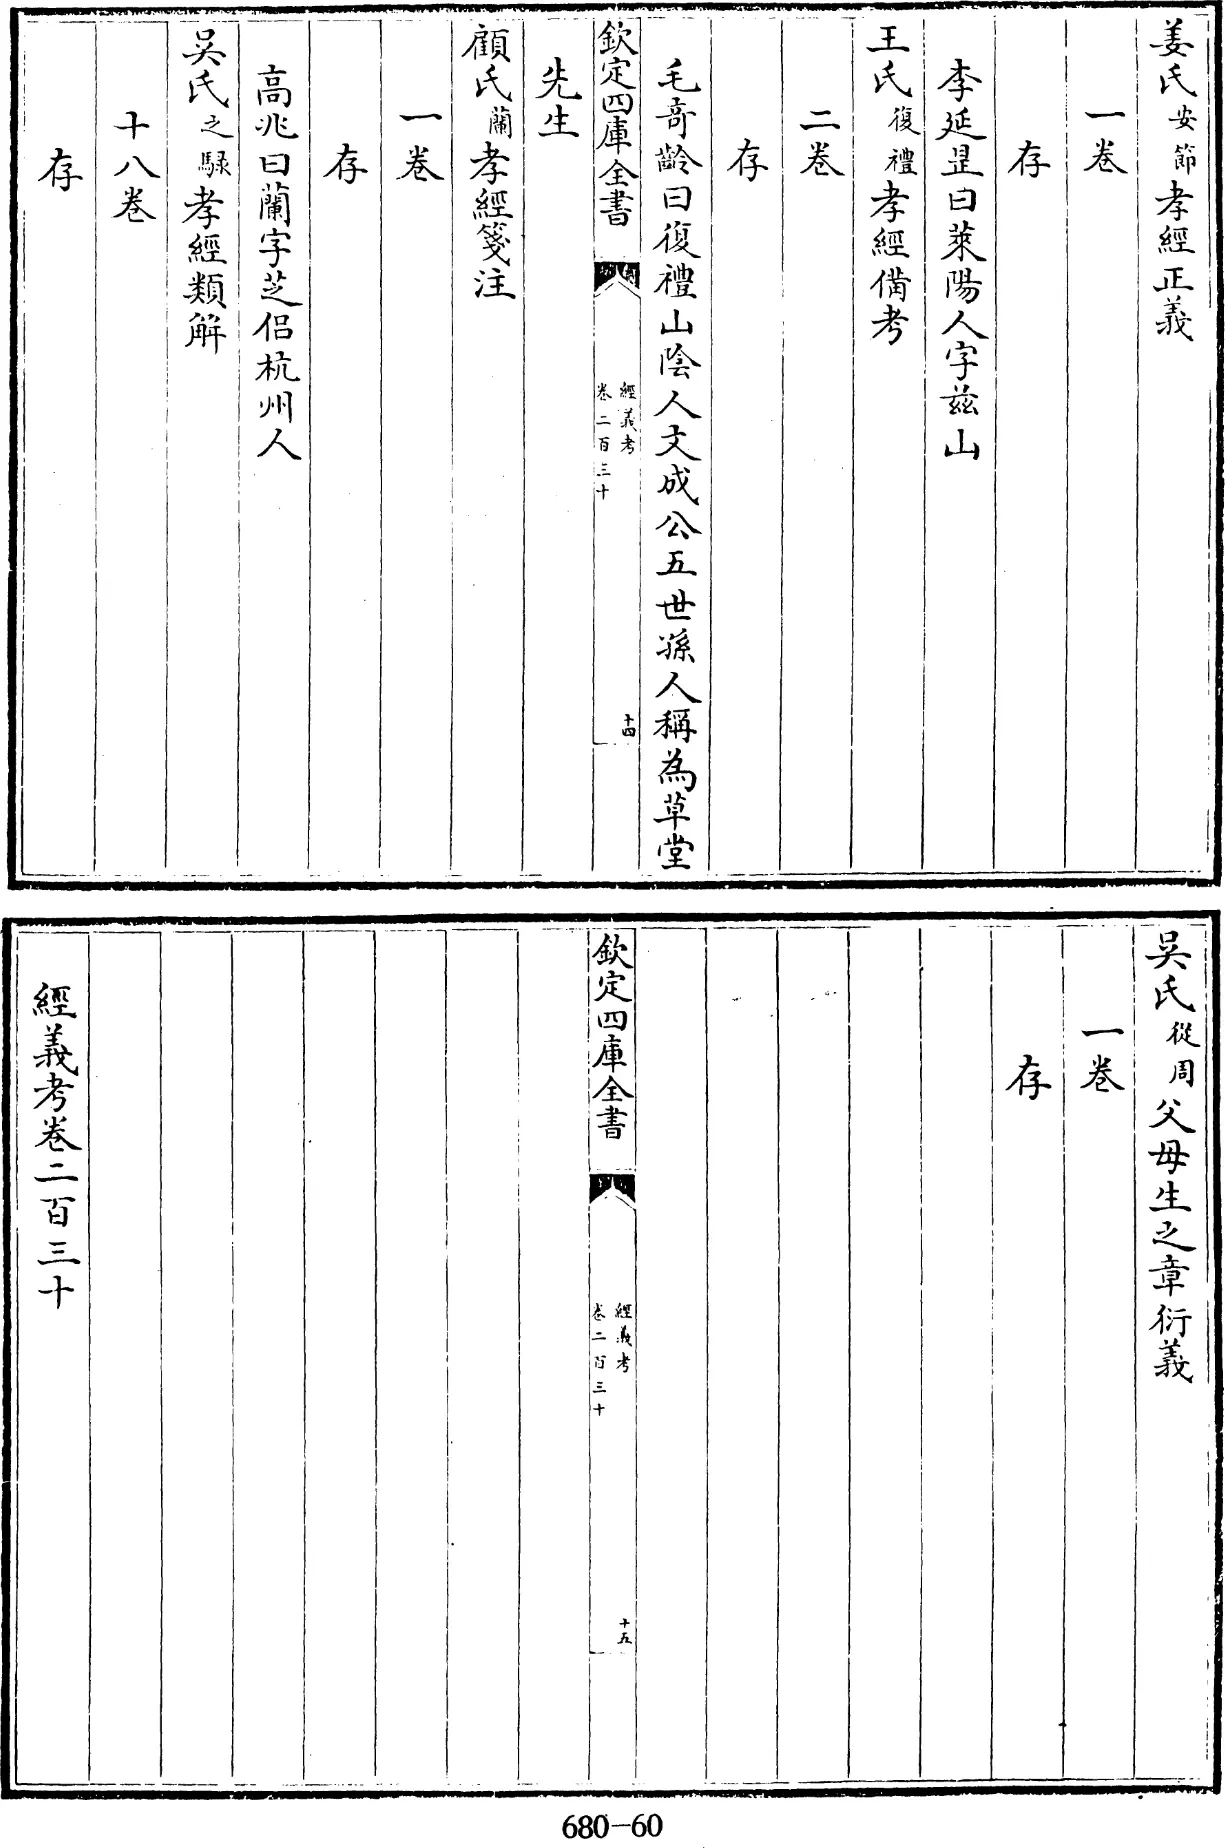 姜氏安節孝經正義
一卷
存
李延昰曰萊陽人字茲山
王氏復禮孝經備考
二卷
存
毛奇齡曰復禮山陰人文成公五世孫人稱為草堂
欽定四庫全書
經義考
卷二百三十
十四
先生
顧氏蘭孝經箋注
一卷
存
高兆曰蘭字芝侶杭州人
吳氏之騄孝經類解
十八卷
存
吳氏從周父母生之章衍義
一卷
存
欽定四庫全書
經義考
卷二百三十
十五
經義考卷二百三十
680-60